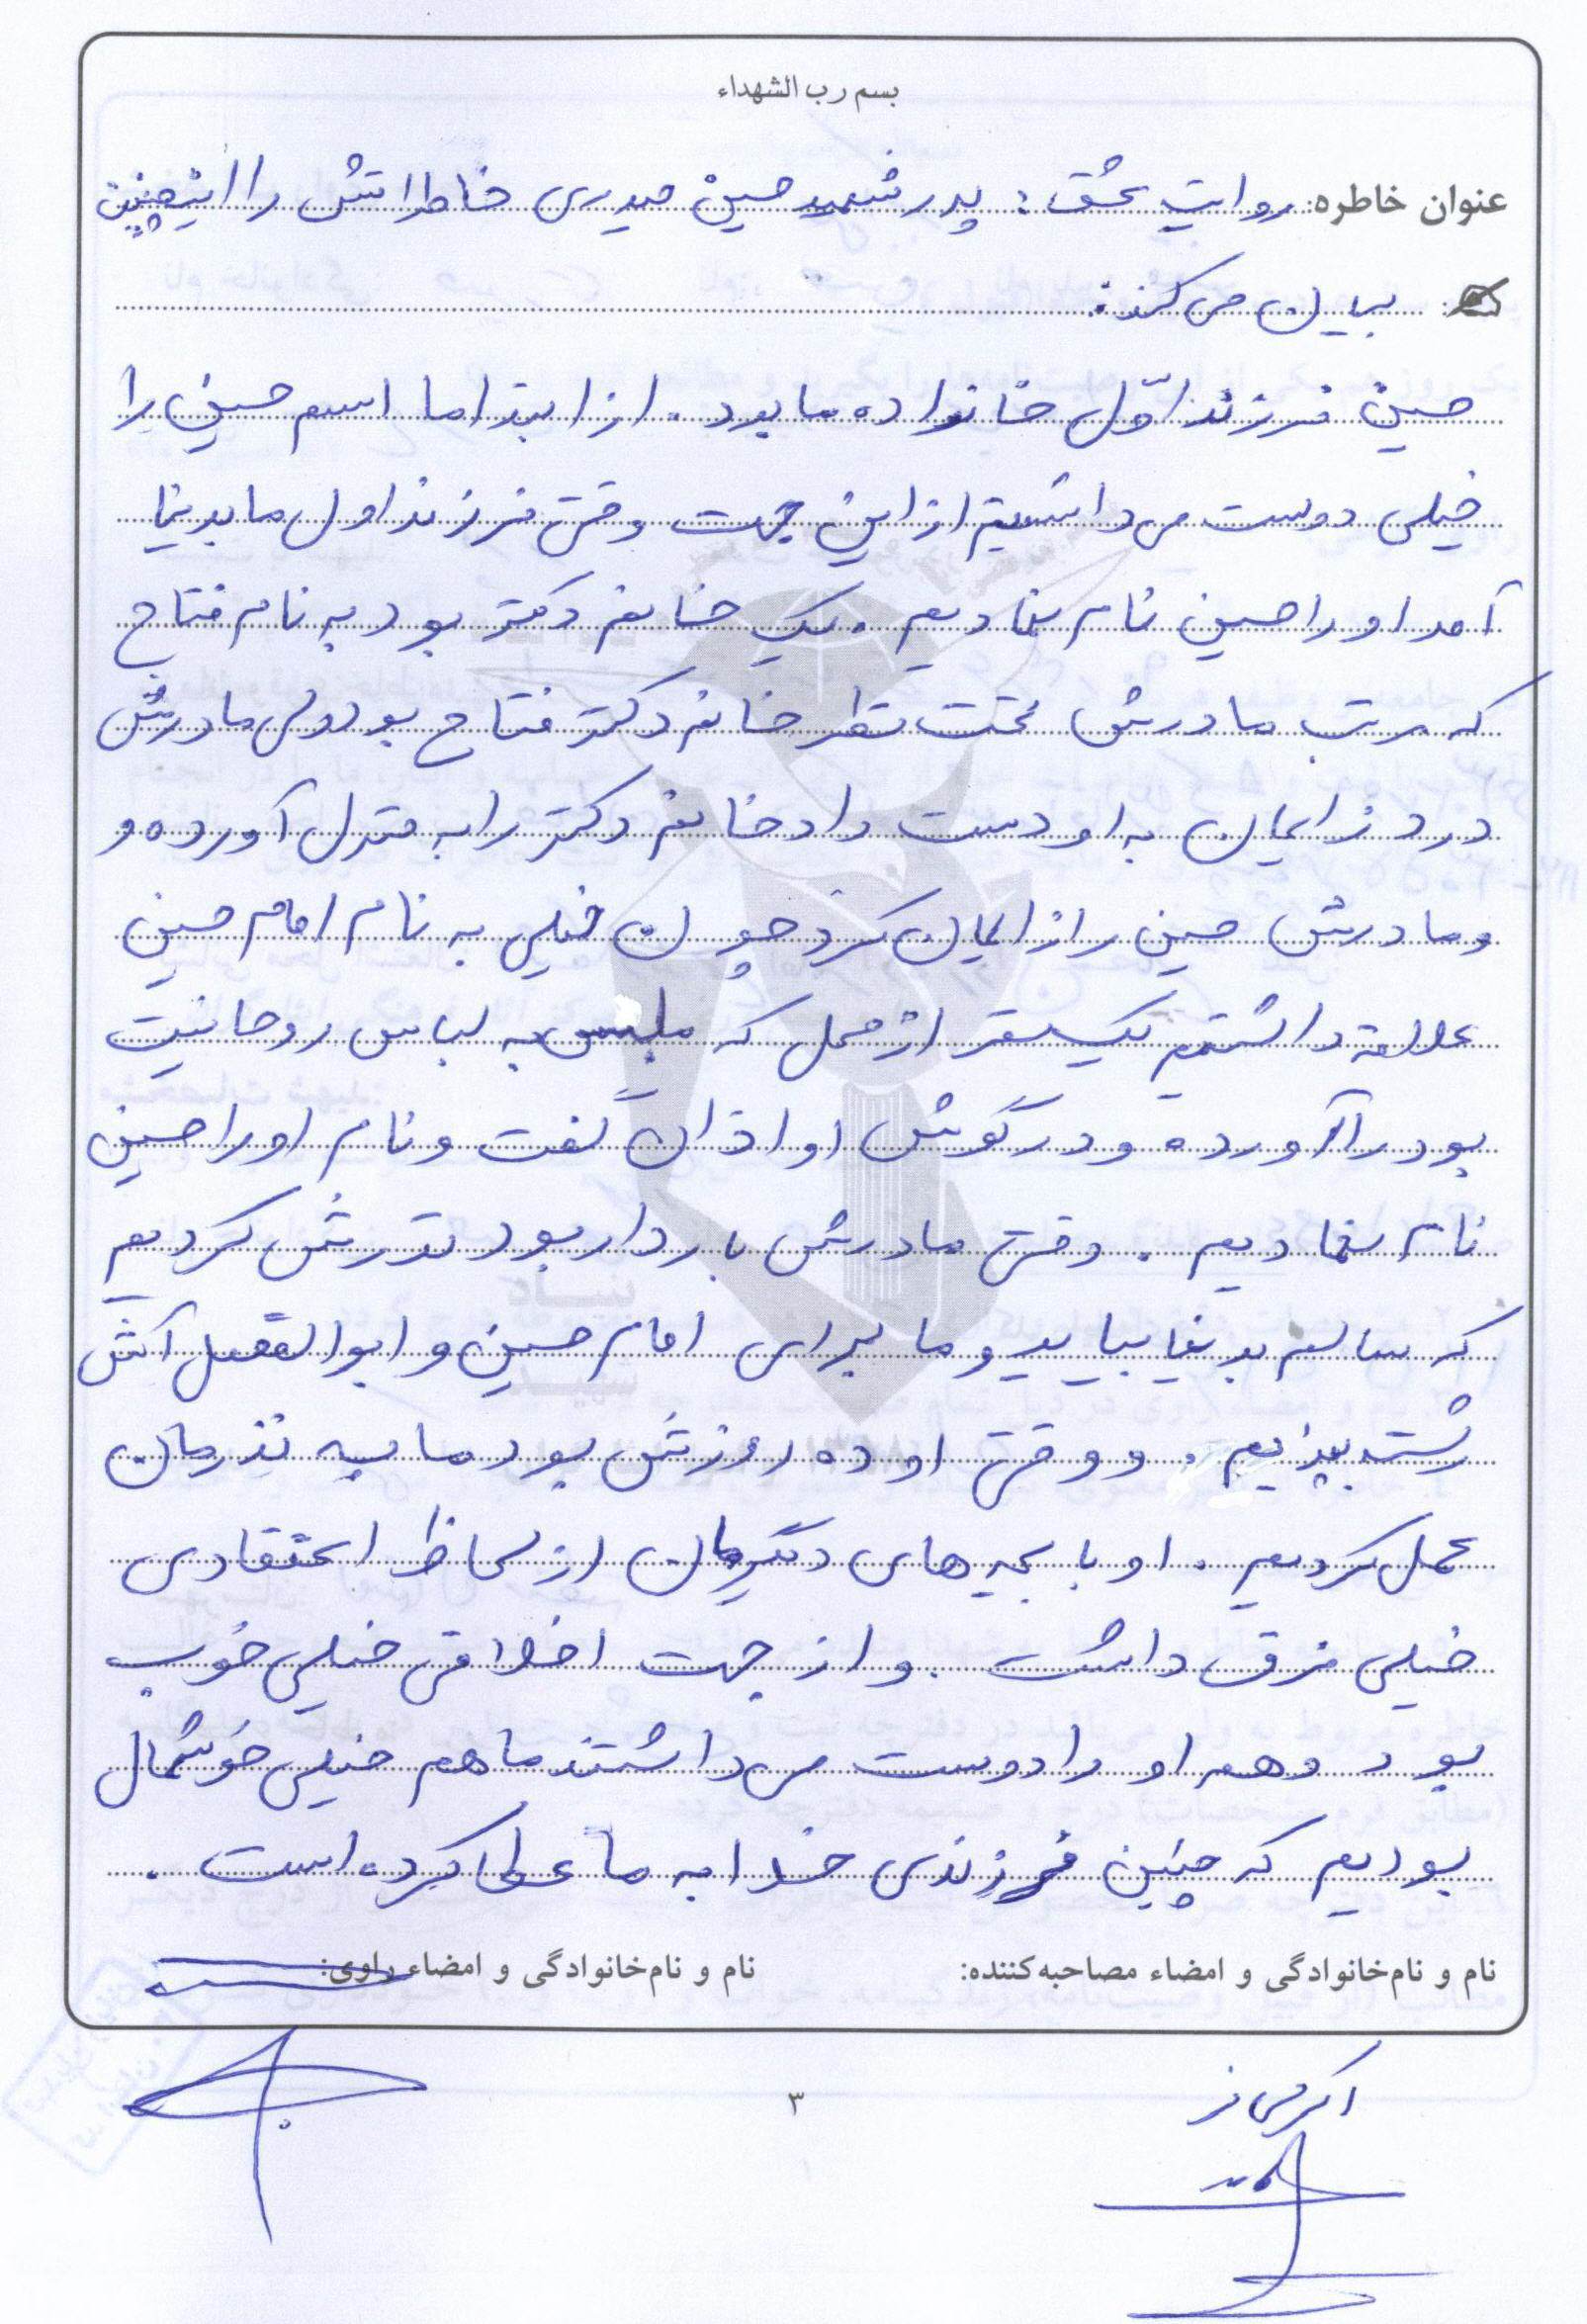 بسم رب الشهداء
عنوان خاطره: روایت عشق: پدر شهید حسین حیدری خاطراتش را اینچنین
بیان می کند:
حسین فرزند اوّل خانواده ما بود. از ابتدا ما اسم حسین را
خیلی دوست می داشتیم از این جهت وقتی فرزند اول ما بدنیا
آمد او را حسین نام نهادیم. یک خانم دکتر بود به نام فتاح
که مرتب مادرش تحت نظر خانم دکتر فتاح بود ولی مادرش
درد زایمان به او دست داد خانم دکتر را به منزل آورده و
و مادرش حسین را زایمان کرد چون خیلی به نام امام حسین
علاقه داشتیم یک نفر از محل که ملبس به لباس روحانیت
بود را آورده و در گوش او اذان گفت و نام او را حسین
نام نهادیم. وقتی مادرش باردار بود نذرش کردیم
که سالم بدنیا بیاید و ما برای امام حسین و ابوالفضل آش
رشته بپزیم. و وقتی او ده روزش بود ما به نذرمان
عمل کردیم. او با بچه های دیگرمان از لحاظ اعتقادی
خیلی فرق داشت. و از جهت اخلاقی خیلی خوب
بود و همه او را دوست می داشتند ما هم خیلی خوشحال
بودیم که چنین فرزندی خدا به ما عطا کرده است.
نام و نام‌خانوادگی و امضاء مصاحبه‌کننده: نام و نام‌خانوادگی و امضاء راوی:
۳